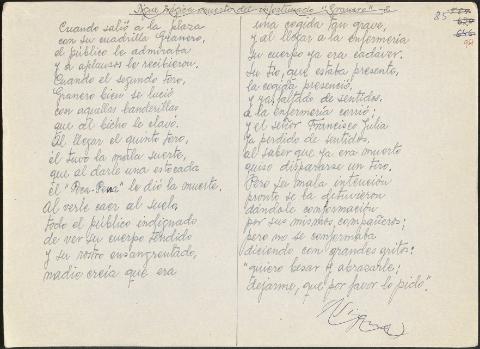 Nova trágica muerte del infortunado "Granero"
85
Cuando salió a la plaza
con su cuadrilla Granero,
el público le admiraba
y a aplausos le recibieron.
Cuando el segundo toro,
Granero bien se lució
con aquellas banderillas
que al bicho le clavó.
Al llegar el quinto toro,
él tuvo la mala suerte,
que al darle una estocada
el "Poca-Pena" le dió la muerte.
Al verle caer al suelo
todo el público indignado
de ver su cuerpo tendido
y su rostro ensangrentado,
nadie creía que era
una cogida tan grave,
y al llegar a la enfermería
su cuerpo ya era cadáver.
Su tío, que estaba presente,
la cogida presenció,
y ya faltado de sentidos
a la enfermería corrió;
y el señor Francisco Juliá
ya perdido de sentidos,
al saber que ya era muerto
quiso dispararse un tiro.
Pero su mala intención
pronto se la detuvieron
dándole conformación
por sus mismos compañeros;
pero no se conformaba
diciendo con grandes gritos:
"quiero besar y abrazarle;
dejarme, que por favor lo pido".